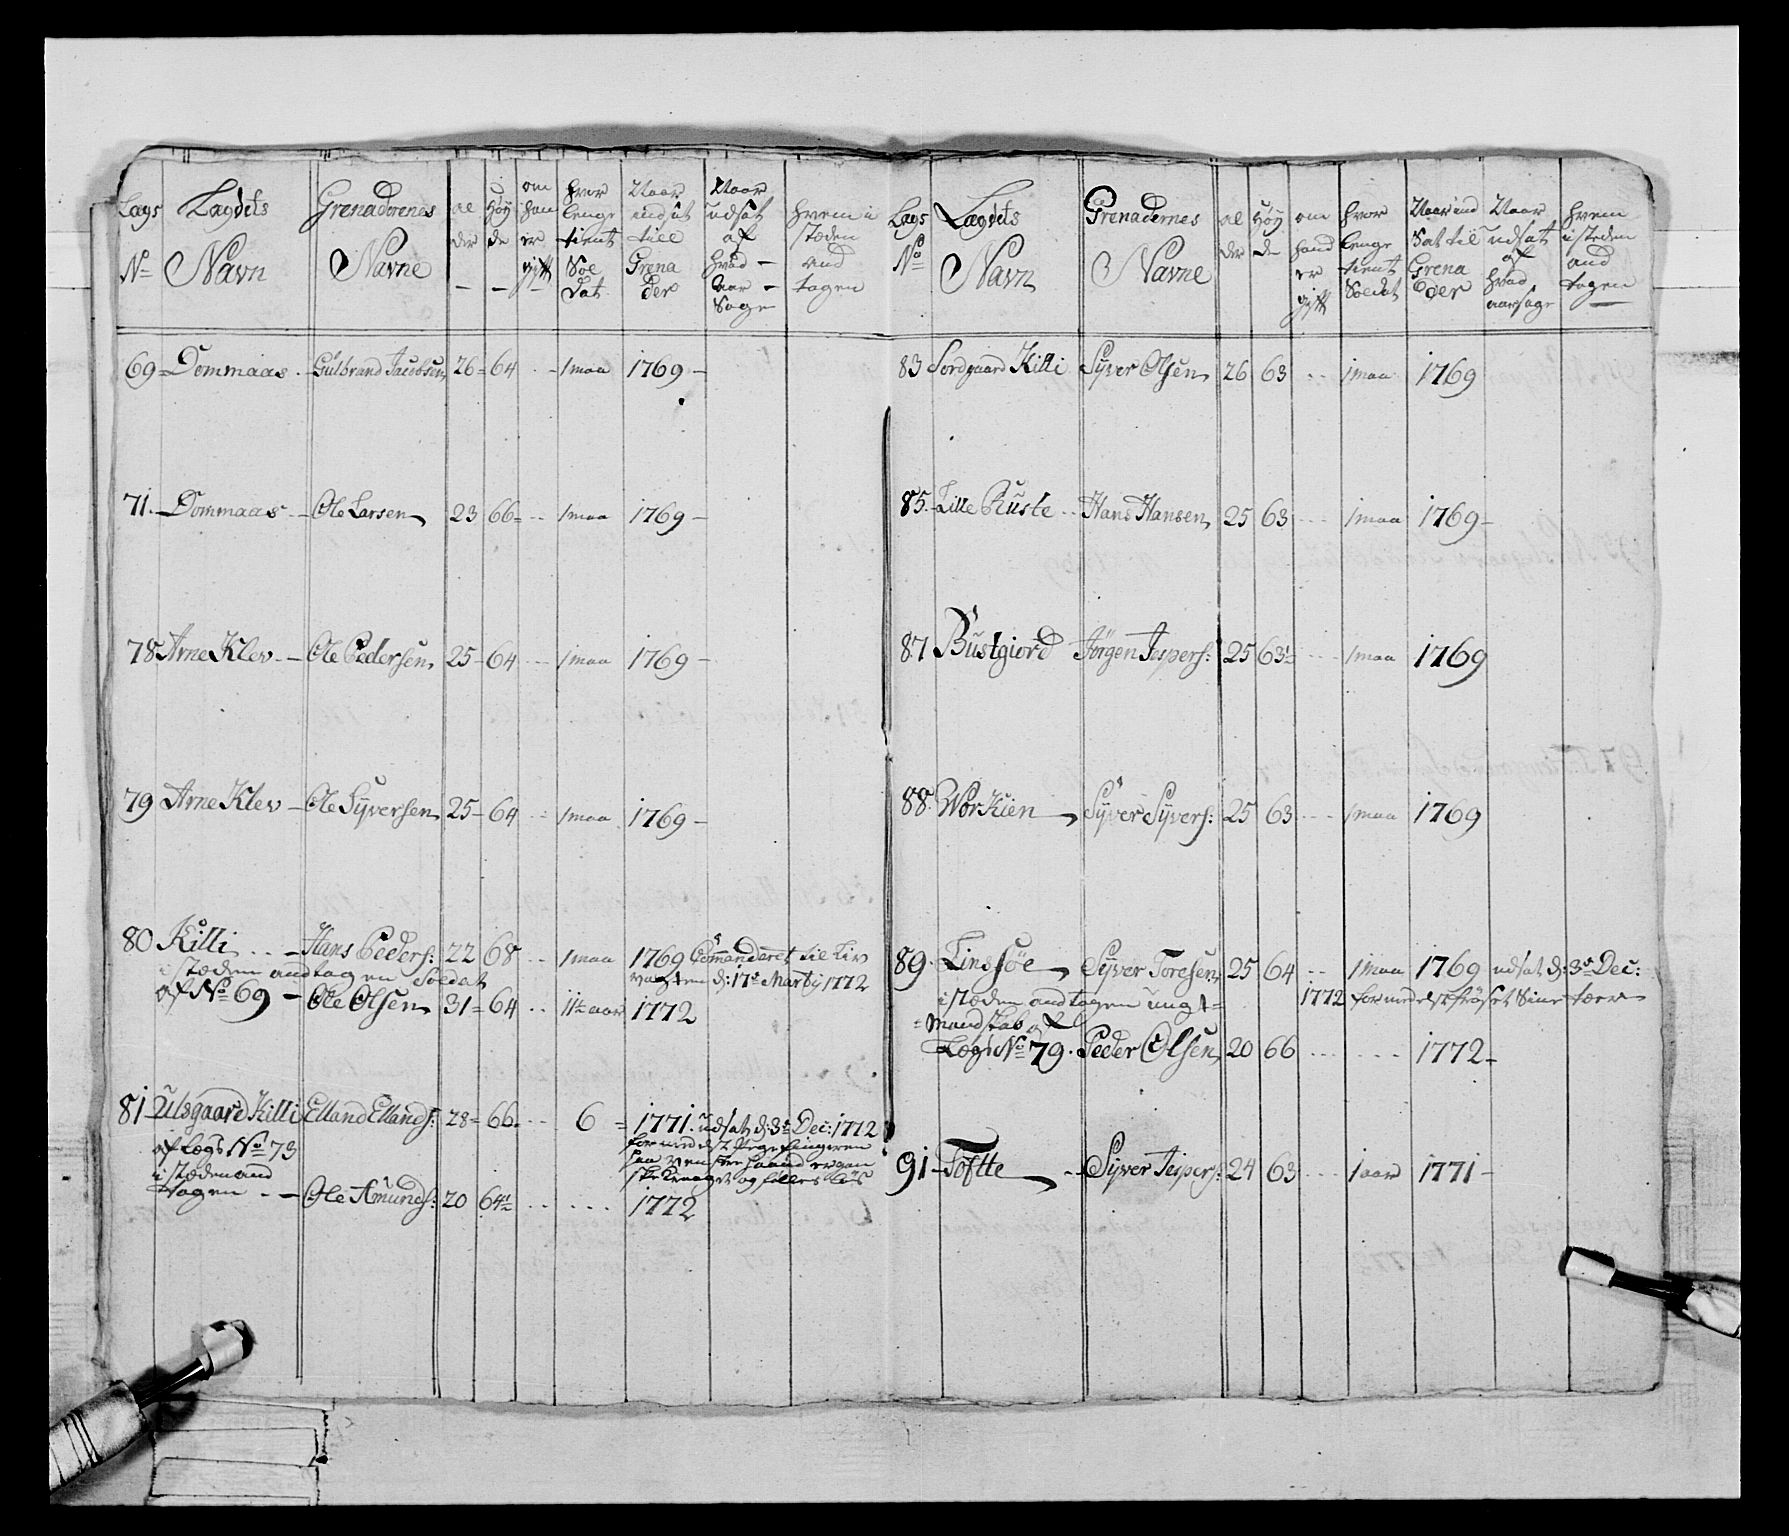 Lægs No
Lægdets Navn
Grenaderenes Navne
al der
Høy de
om han er gift
hvor lenge tient Soldat
Naar indsat till Grenader
Naar udsat af hvad Aarsage
hvem i stæden andtagen
69 - Dommaas - Gulbrand Jacobsen 26 - 64 - 1 maa 1769 -
71 - Dommaas - Ole Larsen 23 66 - 1 maa 1769 -
78 Arne Klev - Ole Pedersen 25 - 64 - 1 maa 1769 -
79 Arne Klev - Ole Syversen 25 - 64 - 1 maa 1769 -
80 Killi - Hans Peders: 22 68 1 maa 1769 Comanderet til Liv
i stæden andtagen Soldat vagten d: 17de Marty 1772
af No 69 - Ole Olsen 31 - 64 11½ aar 1772
81 - Ulsgaard Killi Elland Ellands: 28 - 66 6 = 1771. udsat d: 3de Dec: 1772
af Lægs No 73 formedelst Pegefingeren
i stæden and paa venstre haand er
tagen - Ole Amunds: 20 64½ 1772
Lægs No
Lægdets Navn
Grenadernes Navne
al der
Høy de
om hand er gift
hvor lenge tient Soldat
Naar ind Sat til Grenader
Naar udsat af hvad aarsage
hvem i steden andtagen
83 Sordgaard Killi Syver Olsen 26 63 1 maa 1769
85 - Lille Ruste - Hans Hansen 25 63 1 maa 1769 -
87 Bustgiord Jörgen Jespers: 25 63½ 1 maa 1769
88 Workien Syver Syvers: 25 63 1 maa 1769
89 - Lindsöe Syver Toresen 25 64 1 maa 1769 udsat d: 3de Dec:
i stæden andtagen ungt= 1772 formedelst frösset Sine tæer
=Mandskab af
Lægs No 79. Peder Olsen 20 66 1772 -
91 - Toftte - Syver Jespers: 24 63 1 aar 1771 -